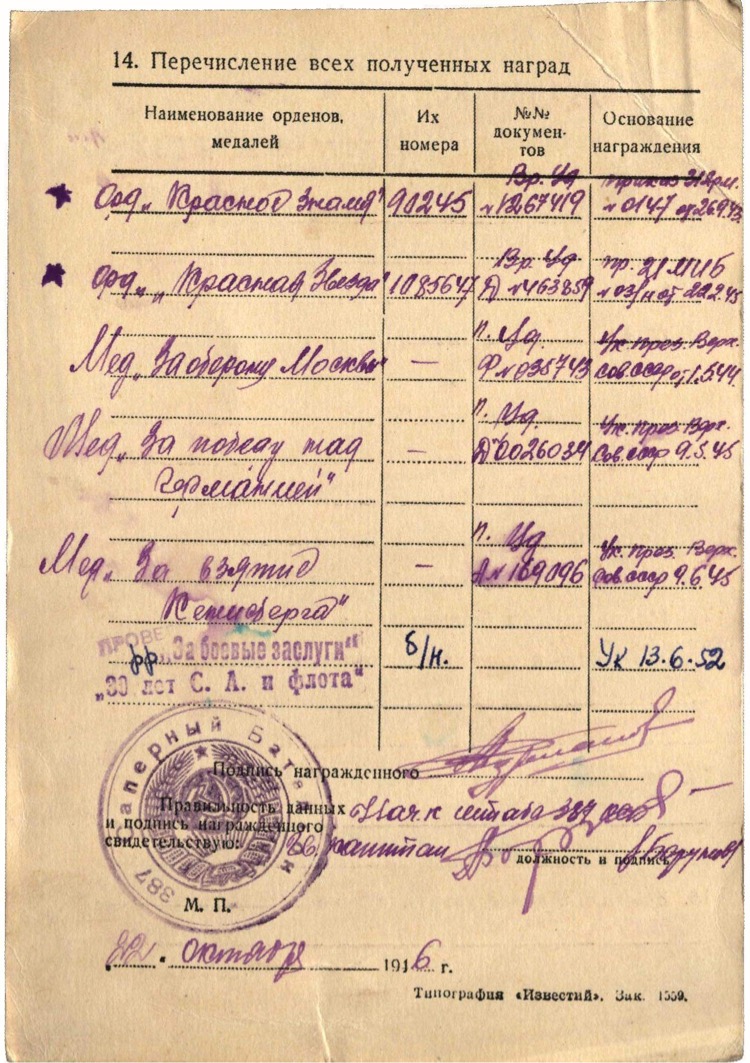 14. Перечисление всех полученных наград
Наименование орденов, медалей
Их номера
№№ документов
Основание награждения
Вр. Уд
Орд „Красное Знамя" 90245 №1267419 №0147 от 26.9.43
Вр. Уд пр. 21 МИБ
орд „Красная Звезда" 1085647 Д №463859 №03/н от 22.2.45
п. Уд. Ук през. Верх.
Мед „За оборону Москвы" — Ф №035743 Сов ссср от 1.5.44
п. Уд. Ук. през. Верх.
Мед „За победу над — Д 0026034 Сов. ссср 9.5.45
Германией"
п. Уд Ук. през. Верх.
Мед „За взятие — А № 169096 Сов ссср 9.6.45
Кенисберга"
ПРОВЕ
„За боевые заслуги" б/н. Ук 13.6.52
„30 лет С. А. и флота"
Подпись награжденного
Правильность данных Нач-к штаба 387
и подпись награжденного
свидетельствую: капитан
должность и подпись
Саперный Батальон 387
М. П.
22. октября 1946 г.
Типография «Известий». Зак. 1559.